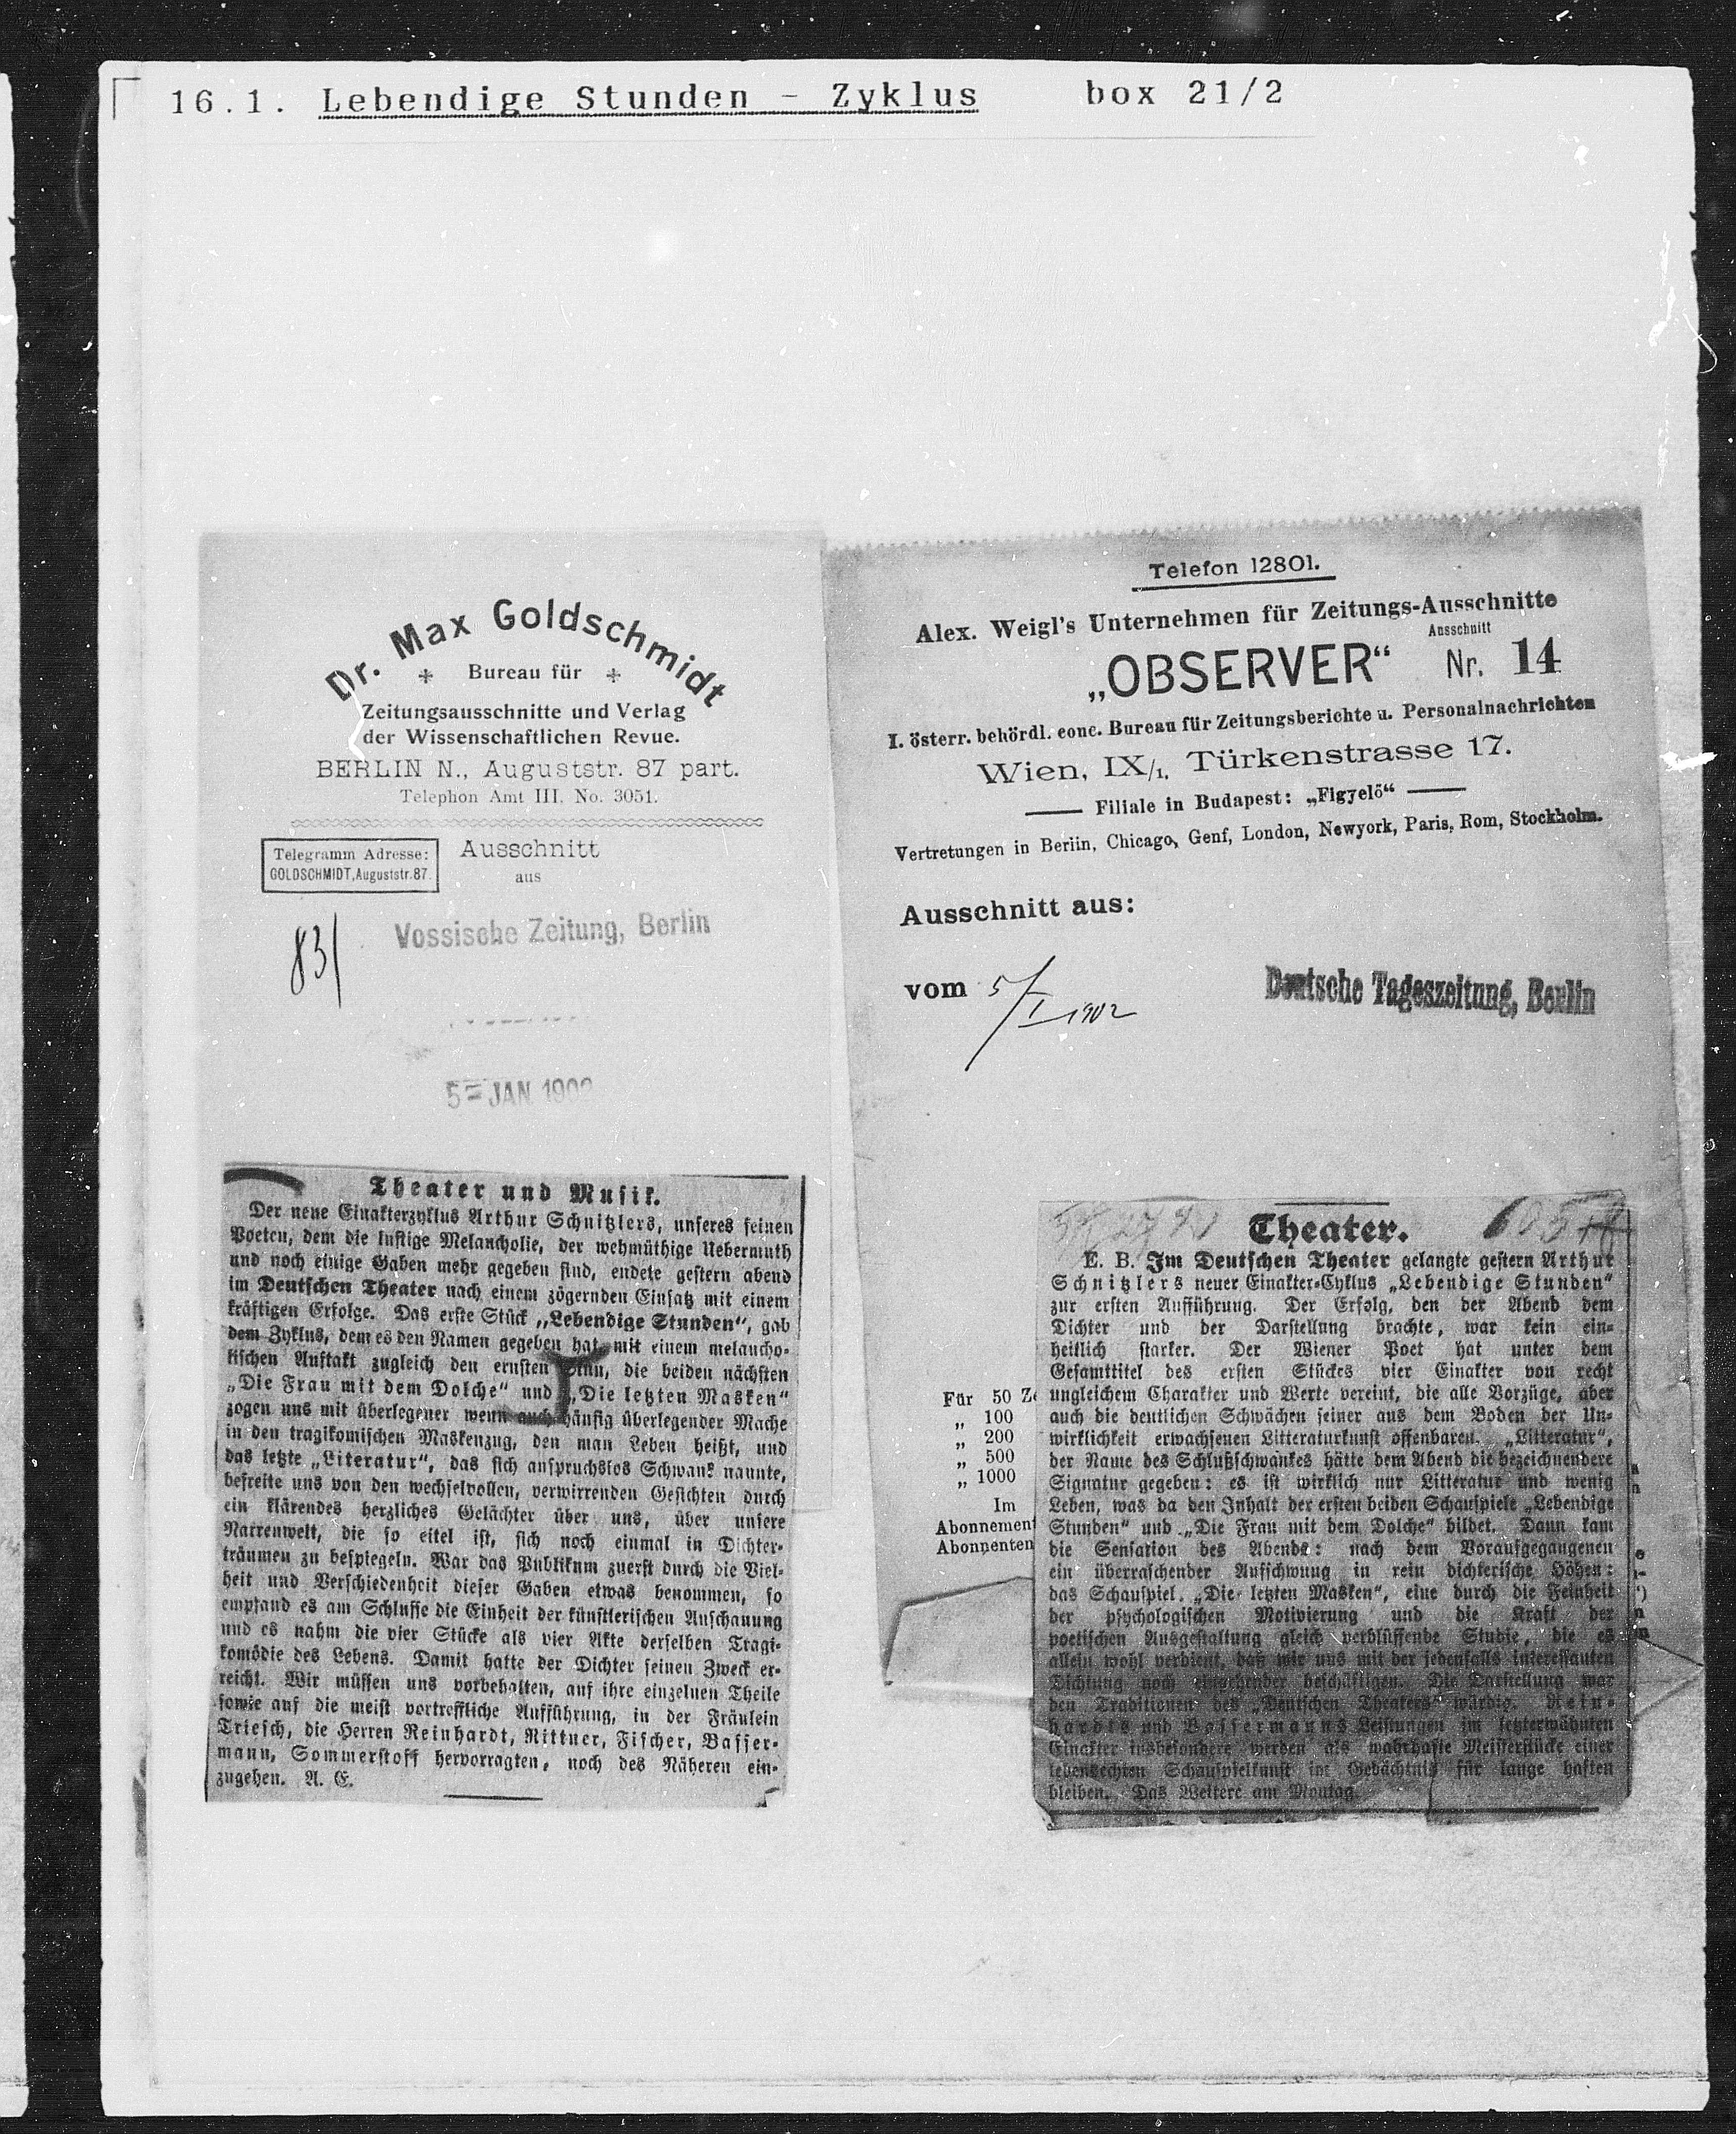 16.1. Lebendige Stunden - Zyklus box 21/2
Dr. Max Goldschmidt
Bureau für
Zeitungsausschnitte und Verlag
der Wissenschaftlichen Revue.
BERLIN N., Auguststr. 87 part.
Telephon Amt III. No. 3051.
Telegramm Adresse:
GOLDSCHMIDT, Auguststr. 87.
Ausschnitt
aus
83/
Vossische Zeitung, Berlin
5 = JAN. 1902
Theater und Musik.
Der neue Einakterzyklus Arthur Schnitzlers, unseres feinen
Poeten, dem die lustige Melancholie, der wehmüthige Uebermuth
und noch einige Gaben mehr gegeben sind, endete gestern abend
im Deutschen Theater nach einem zögernden Einsatz mit einem
kräftigen Erfolge. Das erste Stück „Lebendige Stunden“, gab
dem Zyklus, dem es den Namen gegeben hat, mit einem melancho-
lischen Auftakt zugleich den ernsten Sinn, die beiden nächsten
„Die Frau mit dem Dolche“ und „Die letzten Masken“
zogen uns mit überlegener wenn auch häufig überlegender Mache
in den tragikomischen Maskenzug, den man Leben heißt, und
das letzte „Literatur“, das sich anspruchslos Schwank nannte,
befreite uns von den wechselvollen, verwirrenden Gesichten durch
ein klärendes herzliches Gelächter über uns, über unsere
Narrenwelt, die so eitel ist, sich noch einmal in Dichter-
träumen zu bespiegeln. War das Publikum zuerst durch die Viel-
heit und Verschiedenheit dieser Gaben etwas benommen, so
empfand es am Schlusse die Einheit der künstlerischen Anschauung
und es nahm die vier Stücke als vier Akte derselben Tragi-
komödie des Lebens. Damit hatte der Dichter seinen Zweck er-
reicht. Wir müssen uns vorbehalten, auf ihre einzelnen Theile
sowie auf die meist vortreffliche Aufführung, in der Fräulein
Triesch, die Herren Reinhardt, Rittner, Fischer, Basser-
mann, Sommerstoff hervorragten, noch des Näheren ein-
zugehen. A. E.
Telefon 12801.
Alex. Weigl's Unternehmen für Zeitungs-Ausschnitte
„OBSERVER“
Ausschnitt
Nr. 14
I. österr. behördl. conc. Bureau für Zeitungsberichte u. Personalnachrichten
Wien, IX/1, Türkenstrasse 17.
Filiale in Budapest: „Figyelő“
Vertretungen in Berlin, Chicago, Genf, London, Newyork, Paris, Rom, Stockholm.
Ausschnitt aus:
vom 5/I 1902
Deutsche Tageszeitung, Berlin
Für 50 Ze
„ 100
„ 200
„ 500
„ 1000
Im
Abonnement
Abonnenten
Theater.
E. B. Im Deutschen Theater gelangte gestern Arthur
Schnitzlers neuer Einakter-Cyklus „Lebendige Stunden“
zur ersten Aufführung. Der Erfolg, den der Abend dem
Dichter und der Darstellung brachte, war kein ein-
heitlich starker. Der Wiener Poet hat unter dem
Gesamttitel des ersten Stückes vier Einakter von recht
ungleichem Charakter und Werte vereint, die alle Vorzüge, aber
auch die deutlichen Schwächen seiner aus dem Boden der Un-
wirklichkeit erwachsenen Litteraturkunst offenbaren. „Litteratur“,
der Name des Schlußschwankes hätte dem Abend die bezeichnendere
Signatur gegeben: es ist wirklich nur Litteratur und wenig
Leben, was da den Inhalt der ersten beiden Schauspiele „Lebendige
Stunden“ und „Die Frau mit dem Dolche“ bildet. Dann kam
die Sensation des Abends: nach dem Voraufgegangenen
ein überraschender Aufschwung in rein dichterische Höhen:
das Schauspiel „Die letzten Masken“, eine durch die Feinheit
der psychologischen Motivierung und die Kraft der
poetischen Ausgestaltung gleich verblüffende Studie, die es
allein wohl verdient, daß wir uns mit der jedenfalls interessanten
Dichtung noch eingehender beschäftigen. Die Darstellung war
den Traditionen des „Deutschen Theaters“ würdig. Rein-
hardts und Bassermanns Leistungen im letzterwähnten
Einakter insbesondere werden als wahrhafte Meisterstücke einer
lebensechten Schauspielkunst im Gedächtnis für lange haften
bleiben. Das Weitere am Montag.